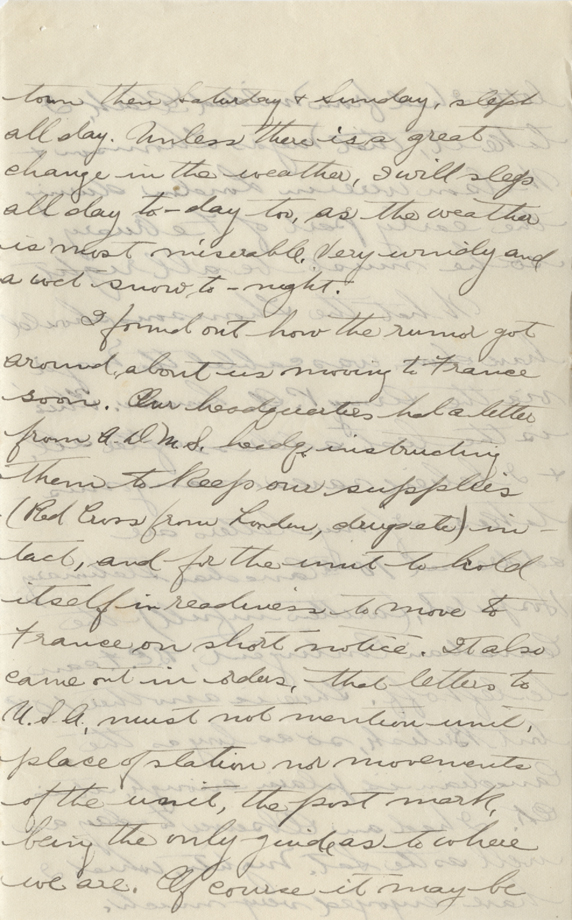 town then saturday & Sunday, slept
all day. Unless there is a great
change in the weather, I will sleep
all day to-day too, as the weather
is most miserable. Very windy and
a wet snow to-night.
I found out how the rumor got
around, about us moving to France
soon. Our headquarties had a letter
from A.D.M.S. headq. instructing
them to keep our supplies
(Red Cross from London, drugs etc) in-
tact, and for the unit to hold
itself in readiness to move to
France on short notice. It also
came out in orders, that letters to
U.S.A. must not mention unit,
place of station nor movements
of the unit, the post mark,
being the only guide as to where
we are. Of course it may be